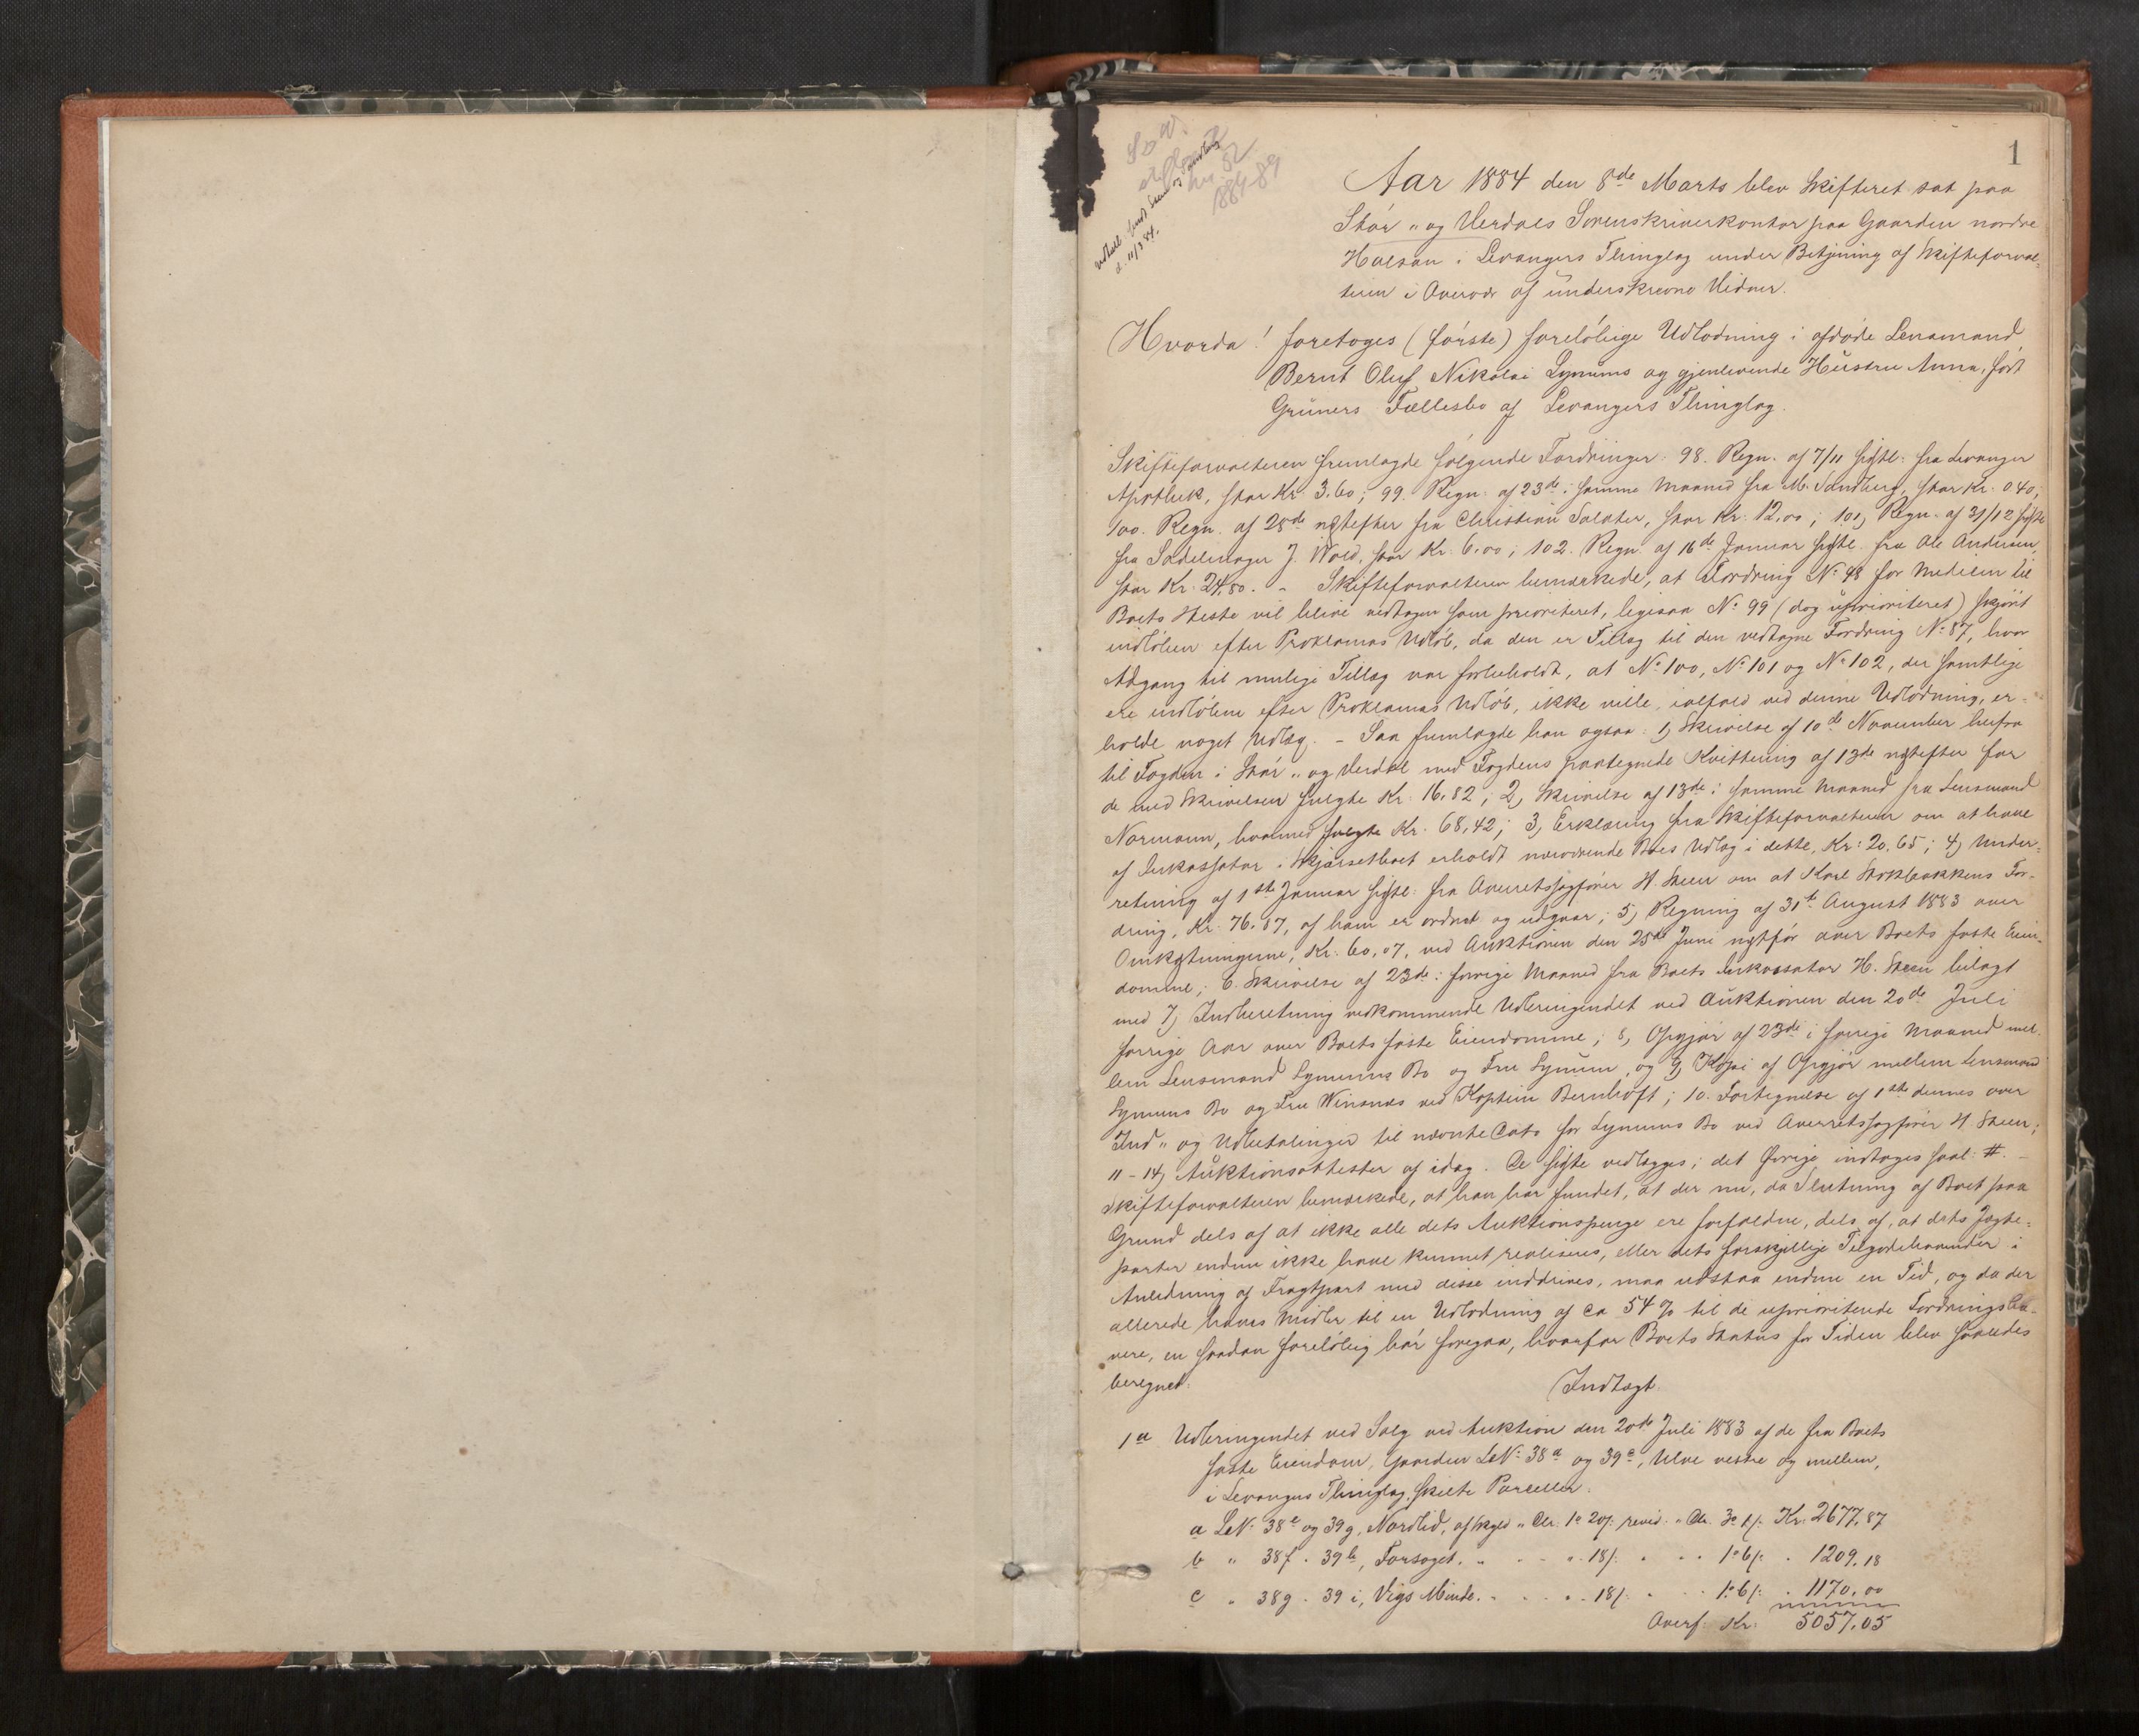 1
Aar 1884 den 8de Marts blev Skifteret sat paa
Stør- og Verdals Sorenskriverkontor paa Gaarden nordre
Halsan i Levangers Thinglag under Betjening af Skifteforval-
teren i Overvær af underskrevne Vidner.
Hvorda! foretoges (første) foreløbige Udlodning i afdøde Lensmand
Bernt Oluf Nikolai Lynums og gjenlevende Hustru Anna, født
Grüners Fællesbo af Levangers Thinglag.
Skifteforvalteren fremlagde følgende Fordringer: 98. Regn. af 7/11 sidstl. fra Levanger
Apothek, stor Kr. 3.60; 99. Regn. af 23de i samme Maaned fra M. Sandberg, stor Kr. 0.40;
100. Regn. af 28de næstefter fra Christian Salater, stor Kr. 12,00; 101, Regn. af 31/12 sidstl.
fra Sadelmager J. Wold, stor Kr. 6.00; 102. Regn. af 16de Januar sidstl. fra Ole Andersen,
stor Kr. 24,80. - Skifteforvalteren bemærkede, at Fordring No 98 for Medicin til
Boets Heste vil blive vedtagen som prioriteret, ligesaa No 99 (dog uprioriteret) skjønt
indløben efter Proklamas Udløb, da den er Tillæg til den vedtagne Fordring No 87, hvor
Adgang til mulige Tillæg var forbeholdt, at No 100, No 101 og No 102, der samtlige
ere indløbne efter Proklamas Udløb, ikke ville, ialfald ved denne Udlodning, er-
holde noget Udlæg. - Saa fremlagde han ogsaa: 1, Skrivelse af 10de November herfra
til Fogden i Stør- og Verdal med Fogdens paategnede Kvittering af 13de næstefter for
de med Skrivelsen fulgte Kr. 16,82; 2, Skrivelse af 13de i samme Maaned fra Lensmand
Normann, hvormed fulgte Kr. 68,42; 3, Erklæring fra Skifteforvalteren om at have
af Inkassator i Skjørsetboet erholdt nærværende Boes Udlæg i dette, Kr: 20.65; 4, Under-
retning af 1ste Januar sidstl. fra Overretssagfører H. Steen om at Karl Stokbakkens For-
dring, Kr: 76.87, af ham er ordnet og udgaar; 5, Regning af 31te August 1883 over
Omkostningerne, Kr. 60,07, ved Auktionen den 25de Juni næstfør over Boets faste Eien-
domme; 6. Skrivelse af 23de i forrige Maaned fra Boets Inkassator H. Steen bilagt
med 7, Indberetning vedkommende Udbringendet ved Auktionen den 20de Juli
forrige Aar over Boets faste Eiendomme; 8, Opgjør af 23de i forrige Maaned mel-
lem Lensmand Lynums Bo og Fru Lynum, og 9, Kopi af Opgjør mellem Lensmand
Lynums Bo og Fru Winsnes ved Kaptein Bernhoft; 10. Fortegnelse af 1ste dennes over
Ind- og Udbetalinger til nævnte Dato for Lynums Bo ved Overretssagfører H Steen;
11-14, Auktionsattester af idag. De sidste vedlægges; det Øvrige indtages saal: #. -
Skifteforvalteren bemærkede, at han har fundet, at der nu, da Slutning af Boet paa
Grund dels af at ikke alle dets Auktionspenge ere forfaldne, dels af, at dets Jagte-
parter endnu ikke have kunnet realiseres, eller dets forskjellige Tilgodehavender i
Anledning af Fragtpart med disse inddrives, maa udstaa endnu en Tid, og da der
allerede haves Midler til en Udlodning af ca 54 % til de uprioriterede Fordringsha-
vere, en saadan foreløbig bør foregaa, hvorfor Boets Status for Tiden blev saaledes
beregnet.
Indtægt.
1a Udbringendet ved Salg ved Auktion den 20de Juli 1883 af de fra Boets
faste Eiendom, Gaarden LNo 38a og 39c, Ulve vestre og mellem,
i Levangers Thinglag, skilte Parceller.
a LNo 38e og 39g, Nordlid, af Skyld " Dlr. 1o 20/: revid. " Dlr. 3o 1/: Kr. 2677,87
b " 38f - 39h, Forsøget. " - - " 18/: " - - 1o 6/: " 1209,18
c " 38g - 39i, Vigs Minde. " - - " 18/: " - - 1o 6/: " 1170,00
Overf. Kr: 5057,05